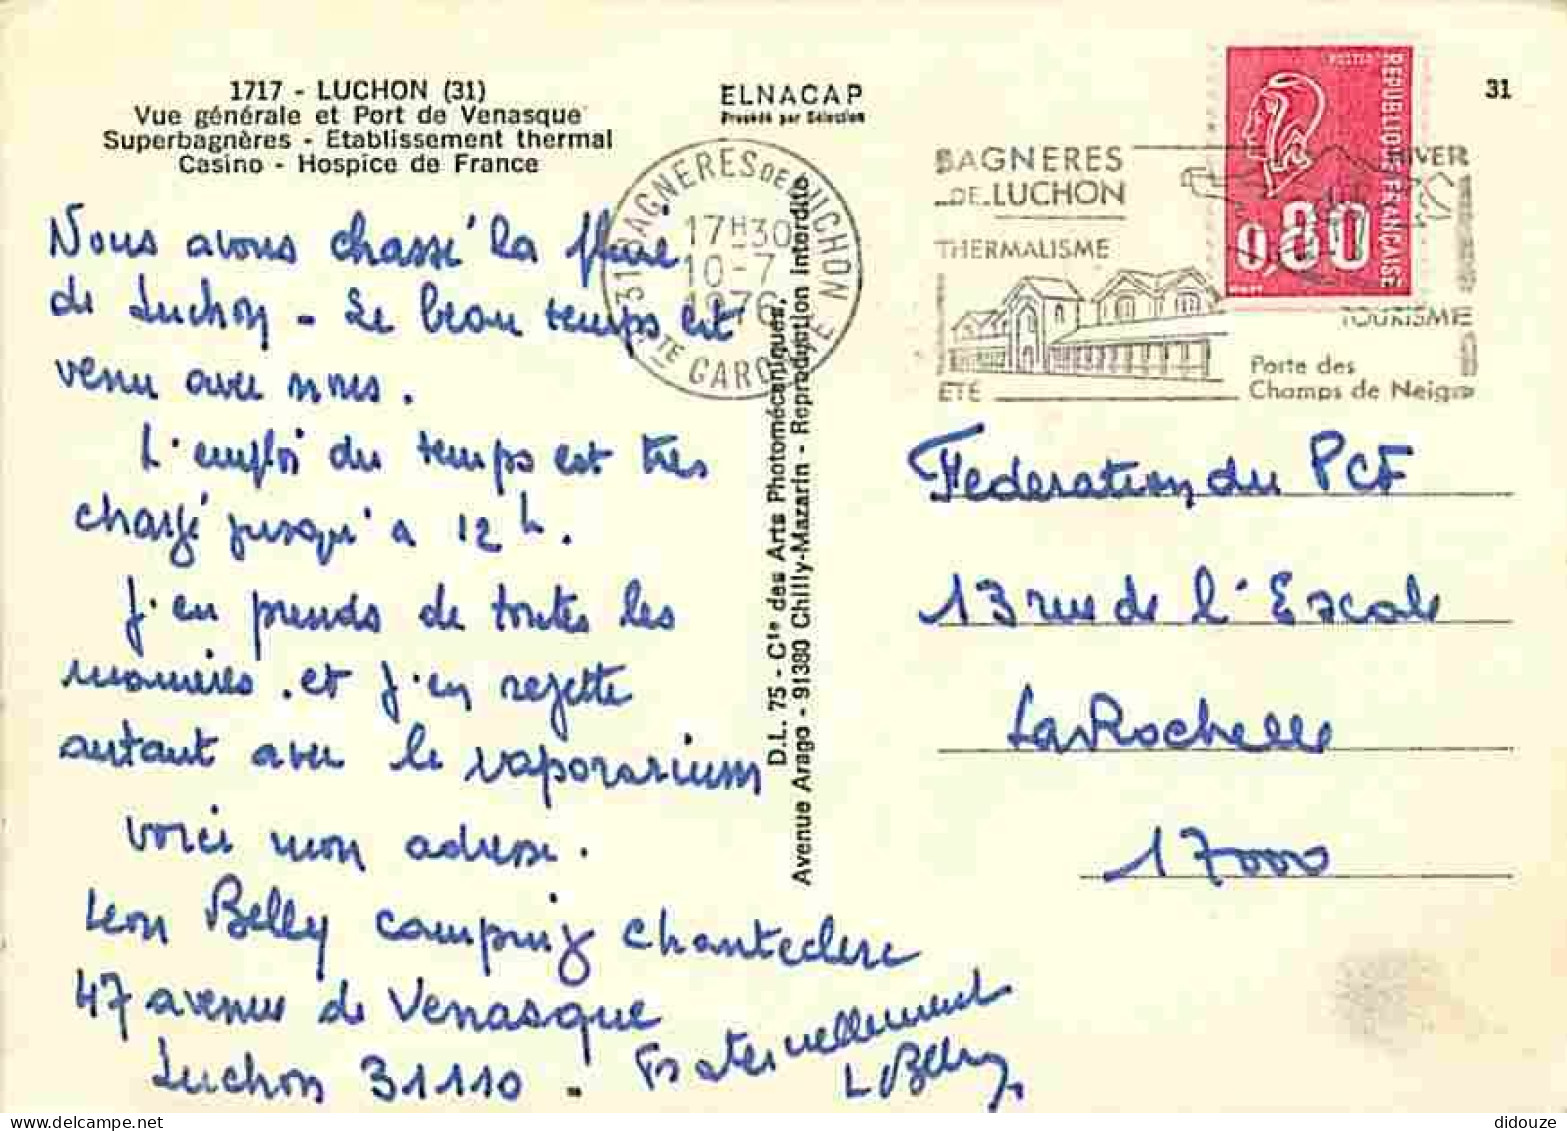 1717 - LUCHON (31)
Vue générale et Port de Venasque
Superbagnères - Etablissement thermal
Casino - Hospice de France
ELNACAP
Procédé par Sélection
31
Nous avons chassé la pluie
de Luchon - Le beau temps est
venu avec nous.
L'emploi du temps est très
chargé jusqu'à 12 h.
J'en prends de toutes les
manières. et j'en rejette
autant avec le vaporarium
voici mon adresse.
Leon Belly camping Chanteclerc
47 avenue de Venasque
Luchon 31110 -
Fraternellement
L Belly
31 BAGNERES DE LUCHON
17H30
10-7
1976
HTE GARONNE
D.L. 75 - Cie des Arts Photomécaniques,
Avenue Arago - 91380 Chilly-Mazarin - Reproduction interdite
BAGNERES
DE LUCHON
THERMALISME
ETE
HIVER
TOURISME
Porte des
Champs de Neige
POSTES
REPUBLIQUE FRANÇAISE
0,80
Federation du PCF
13 rue de l'Escale
La Rochelle
17000
didouze